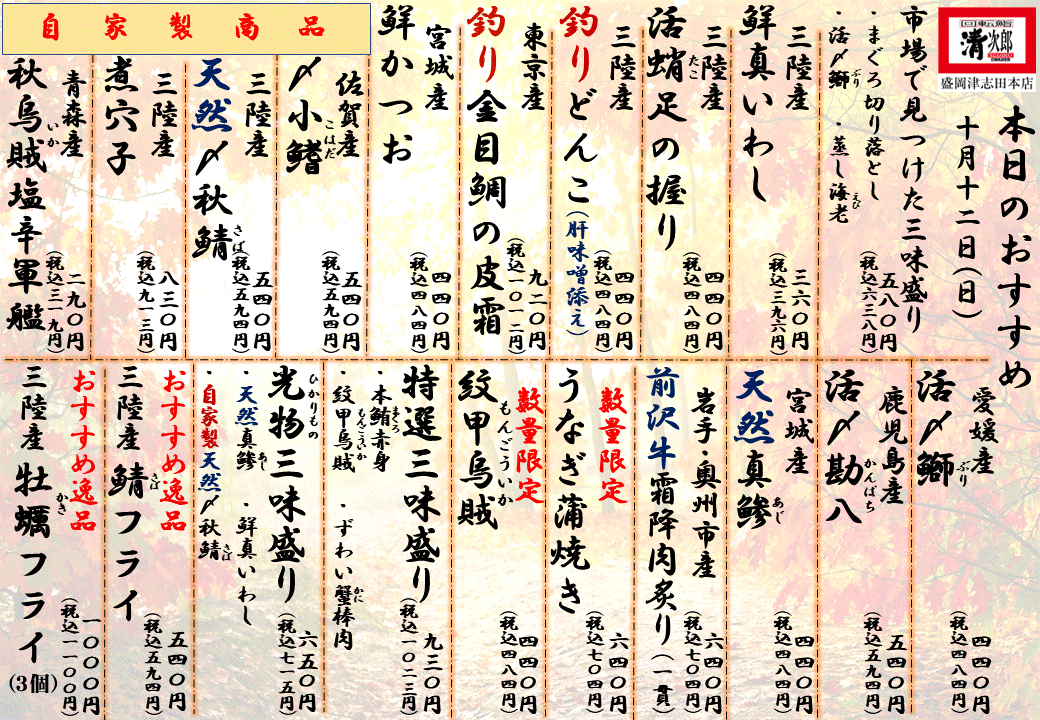 回転鮨
清次郎
盛岡津志田本店
本日のおすすめ
十月十二日(日)
市場で見つけた三味盛り
・まぐろ切り落とし
・活〆鰤 ・蒸し海老
ぶり
えび
五八〇円
(税込六三八円)
三陸産
鮮真いわし
三六〇円
(税込三九六円)
三陸産
活蛸足の握り
たこ
四四〇円
(税込四八四円)
三陸産
釣りどんこ(肝味噌添え)
四四〇円
(税込四八四円)
東京産
釣り金目鯛の皮霜
九二〇円
(税込一〇一二円)
宮城産
鮮かつお
四四〇円
(税込四八四円)
自家製商品
佐賀産
〆小鰭
こはだ
五四〇円
(税込五九四円)
三陸産
天然〆秋鯖
さば
五四〇円
(税込五九四円)
三陸産
煮穴子
八三〇円
(税込九一三円)
青森産
秋烏賊塩辛軍艦
いか
二九〇円
(税込三一九円)
愛媛産
活〆鰤
ぶり
四四〇円
(税込四八四円)
鹿児島産
活〆勘八
かんぱち
五四〇円
(税込五九四円)
宮城産
天然真鯵
あじ
四四〇円
(税込四八四円)
岩手・奥州市産
前沢牛霜降肉炙り(一貫)
六四〇円
(税込七〇四円)
数量限定
うなぎ蒲焼き
六四〇円
(税込七〇四円)
数量限定
紋甲烏賊
もんごういか
四四〇円
(税込四八四円)
特選三味盛り
・本鮪赤身 ・ずわい蟹棒肉
まぐろ
かに
・紋甲烏賊
もんごういか
九三〇円
(税込一〇二三円)
光物三味盛り
ひかりもの
・天然真鯵 ・鮮真いわし
あじ
・自家製天然〆秋鯖
さば
六五〇円
(税込七一五円)
おすすめ逸品
三陸産 鯖フライ
さば
五四〇円
(税込五九四円)
おすすめ逸品
三陸産 牡蠣フライ(3個)
かき
一〇〇〇円
(税込一一〇〇円)